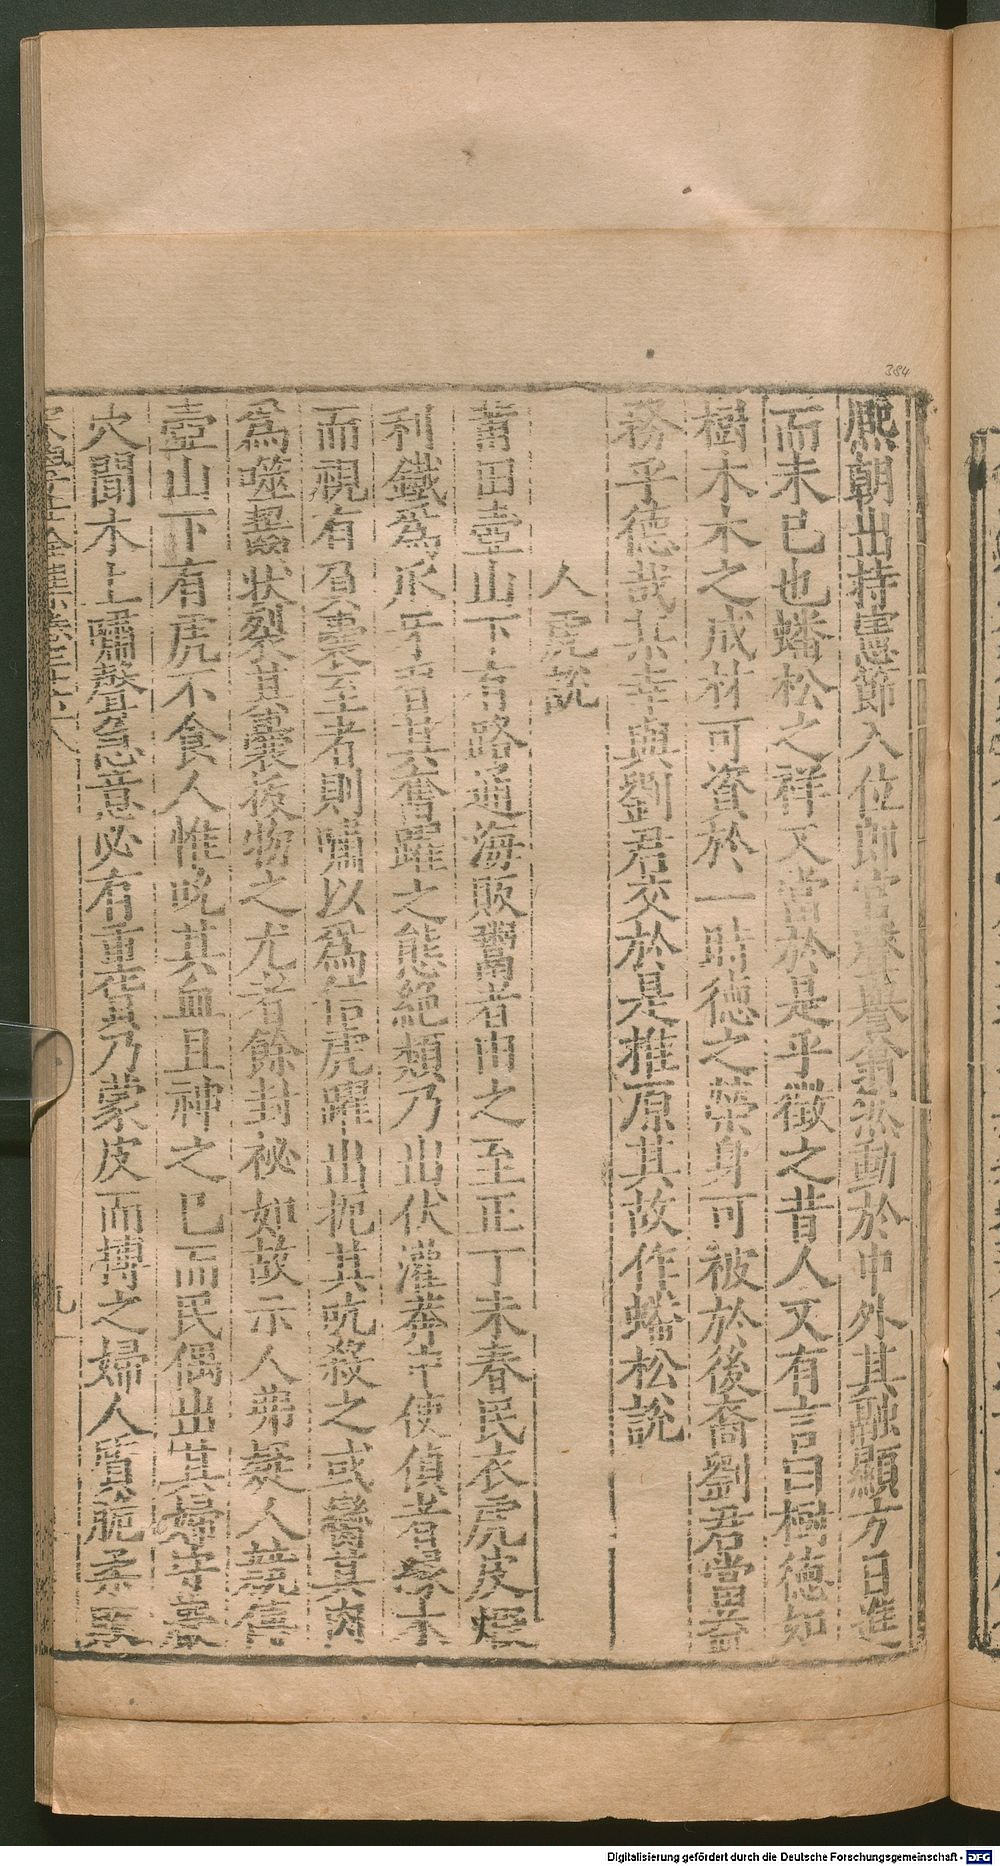 384
熈朝出持憲節入位郎官聲譽翕然動於中外其融顯方日進
而未已也蟠松之祥又當於是乎徵之昔人又有言曰樹德如
樹木木之成材可資於一時德之榮身可被於後裔劉君當益
務乎德哉某幸與劉君交於是推原其故作蟠松說
人虎說
莆田壺山下有路通海販鬻者由之至正丁未春民衣虎皮煆
利鐵爲爪牙習其奮躍之態絕類乃出伏灌莽中使偵者緣木
而視有負囊至者則嘯以爲信虎躍出扼其吭殺之或臠其肉
爲噬齧狀裂其囊拔物之尤者餘封祕如故示人弗疑人競傳
壺山下有虎不食人惟吮其血且神之已而民偶出其婦守巖
穴聞木上嘯聲急意必有重貨乃蒙皮而搏之婦人質脆柔販
九
Digitalisierung gefördert durch die Deutsche Forschungsgemeinschaft - DFG